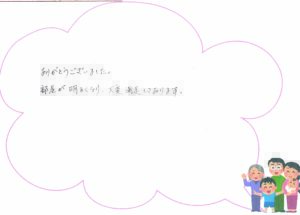 ありがとうございました。
部屋が明るくなり、大変満足しております。